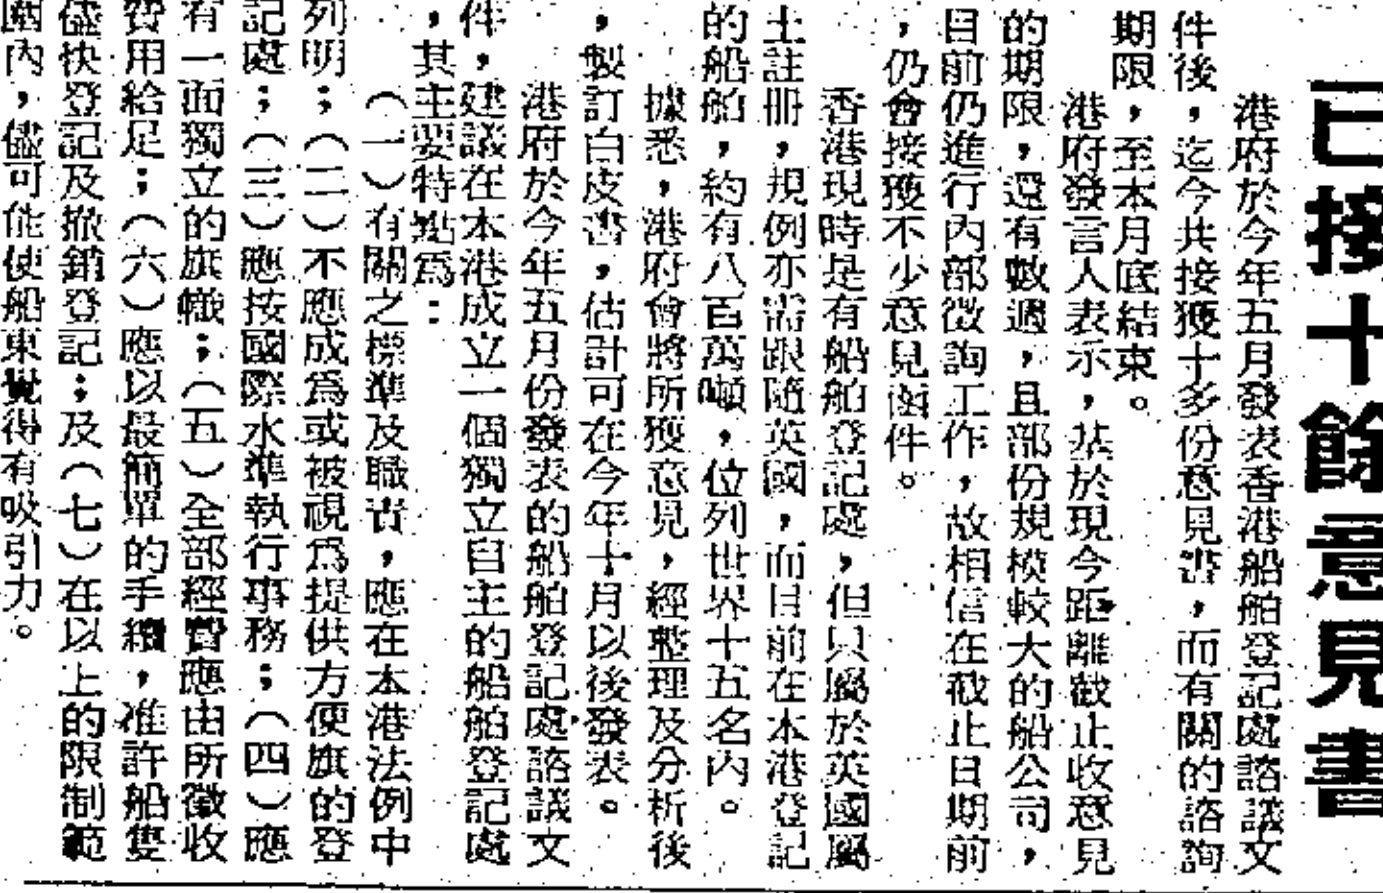 已接十餘意見書
港府於今年五月發表香港船舶登記處諮議文
件後，迄今共接獲十多份意見書，而有關的諮詢
期限，至本月底結束。
港府發言人表示，基於現今距離截止收意見
的期限，還有數週，且部份規模較大的船公司，
目前仍進行內部徵詢工作，故相信在截止日期前
，仍會接獲不少意見函件。
香港現時是有船舶登記處，但只屬於英國屬
土註冊，規例亦需跟隨英國，而目前在本港登記
的船舶，約有八百萬噸，位列世界十五名內。
據悉，港府會將所獲意見，經整理及分析後
，製訂白皮書，估計可在今年十月以後發表。
港府於今年五月份發表的船舶登記處諮議文
件，建議在本港成立一個獨立自主的船舶登記處
，其主要特點為：
（一）有關之標準及職責，應在本港法例中
列明；（二）不應成為或被視為提供方便旗的登
記處；（三）應按國際水準執行事務；（四）應
有一面獨立的旗幟；（五）全部經費應由所徵收
費用給足；（六）應以最簡單的手續，准許船隻
儘快登記及撤銷登記；及（七）在以上的限制範
圍內，儘可能使船東覺得有吸引力。